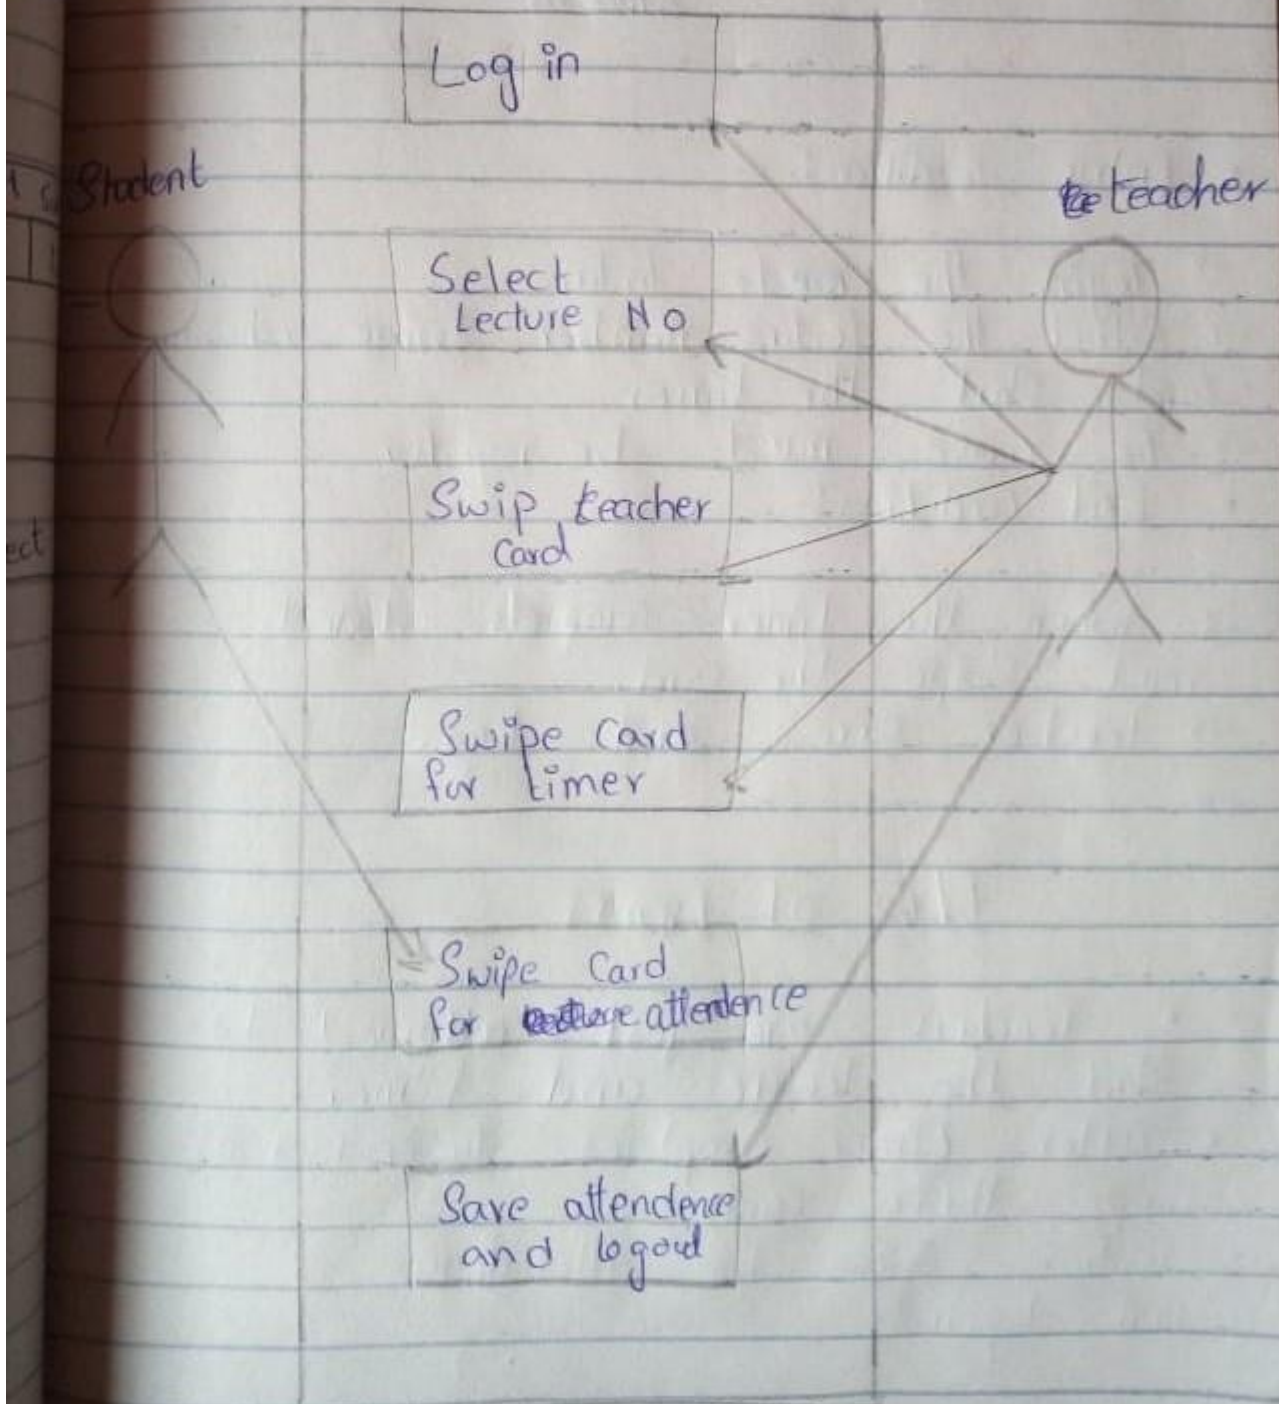 Log in
Student
teacher
Select
Lecture No
Swip teacher
Card
Swipe Card
for timer
Swipe Card
for attendence
Save attendence
and logout
ect